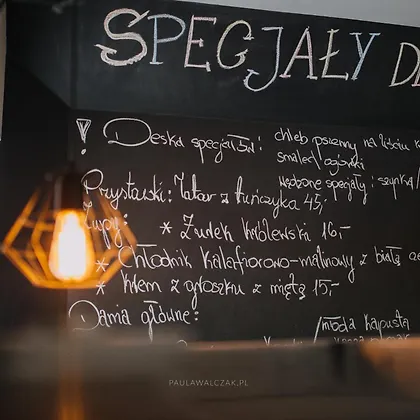 SPECJAŁY D
! Deska specjałów: chleb pszenny na liściu k
smalec/ogórki
wędzone specjały: szynka/
Przystawki: Tatar z tuńczyka 45,-
Zupy: * Żurek królewski 16,-
* Chłodnik kalafiorowo-malinowy z białą cze
* Krem z groszku z miętą 15,-
Dania główne:
/młoda kapusta
PAULAWALCZAK.PL